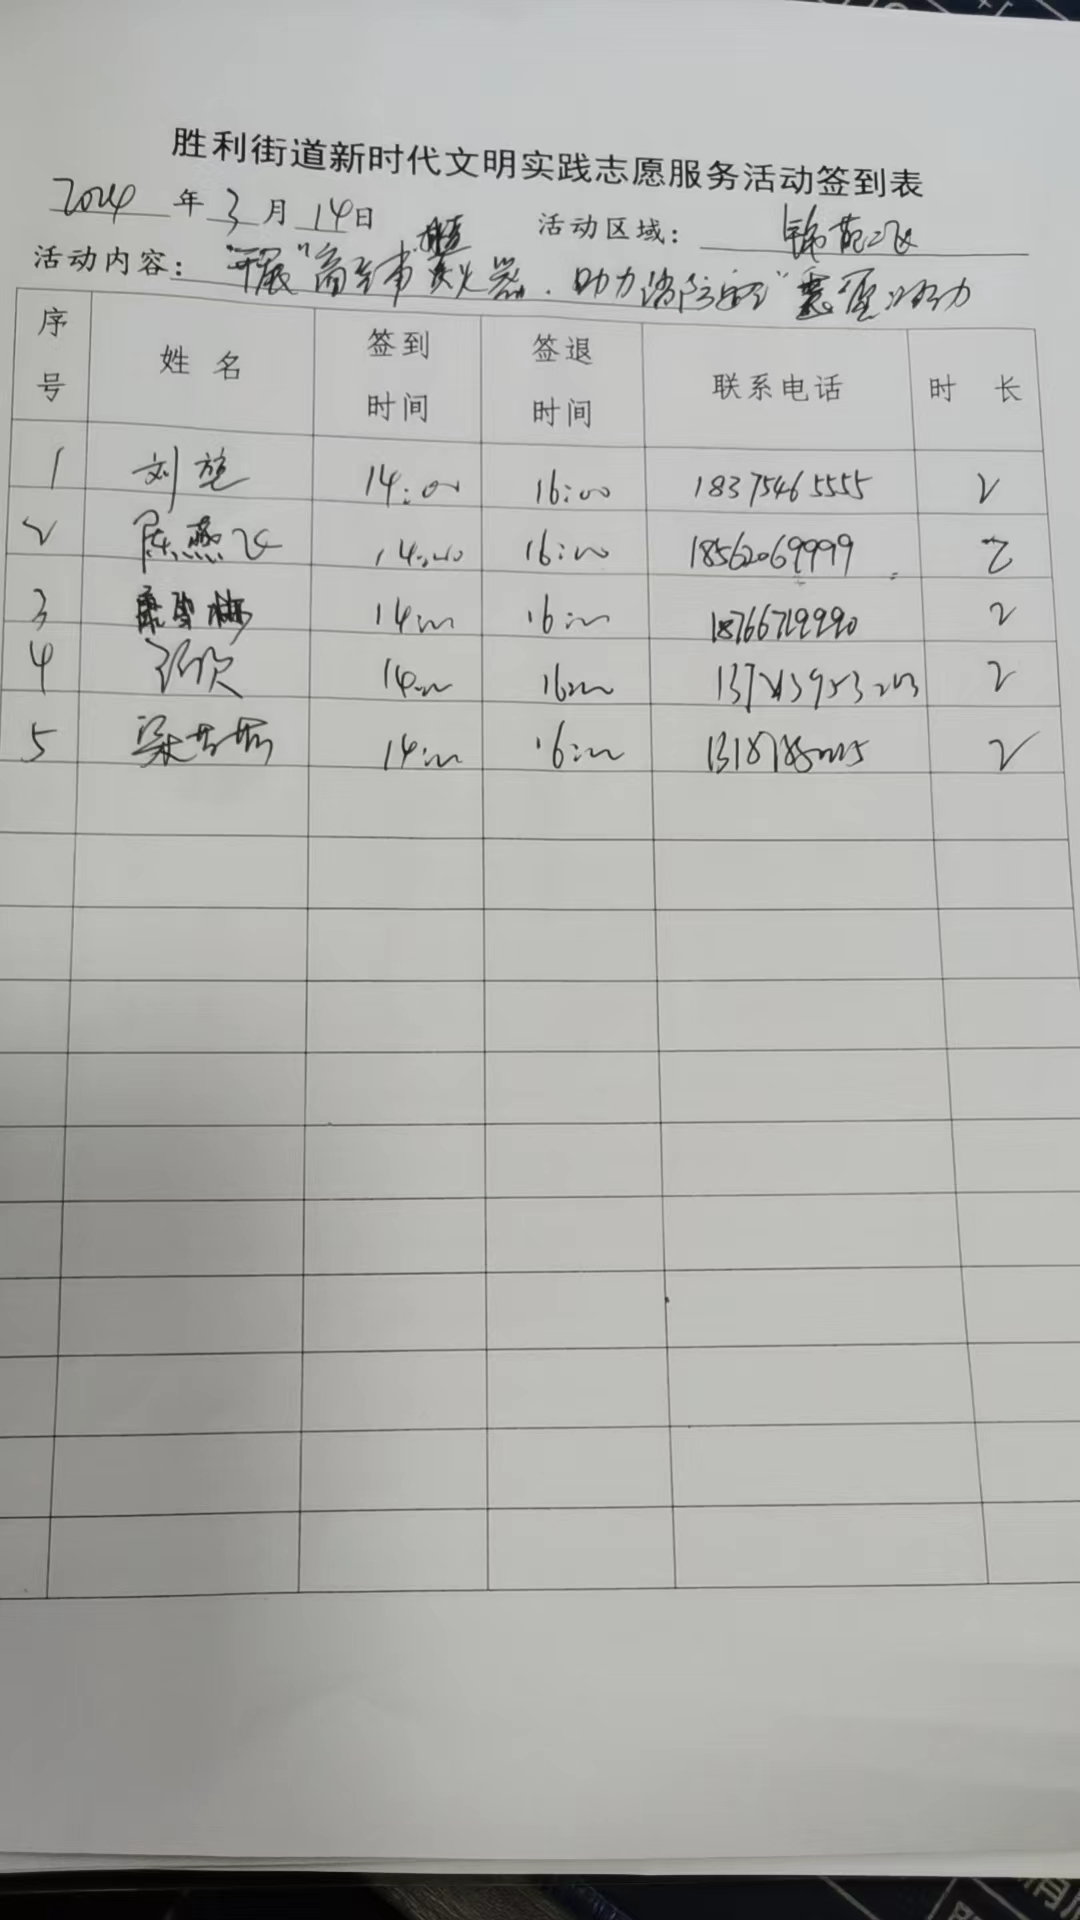 胜利街道新时代文明实践志愿服务活动签到表
2024年3月14日 活动区域：锦苑二区
活动内容：开展 灭火器、助力消防安全"志愿活动
序号 姓名 签到时间 签退时间 联系电话 时长
1 刘 14:00 16:00 18375465555 2
2 陈燕飞 14:00 16:00 18562069999 2
3 14:00 16:00 18766729990 2
4 14:00 16:00 2
5 梁 14:00 16:00 2